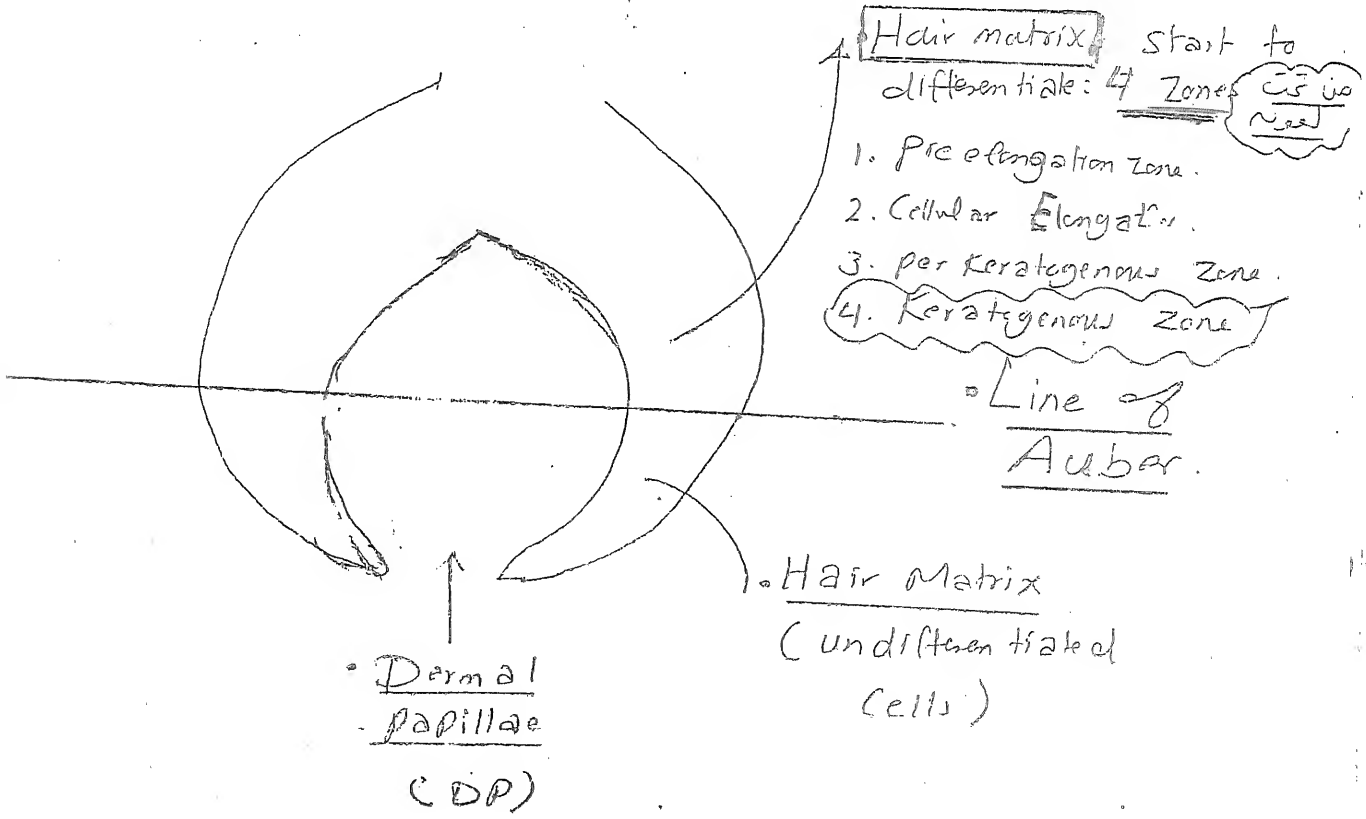 Hair matrix start to
differentiate: 4 Zones من تحت
لفوق
1. Pre elongation zone.
2. Cellular Elongatn.
3. per Keratogenous Zone.
4. Keratogenous Zone
• Line of
Auber.
• Hair Matrix
(undifferentiated
Cells)
• Dermal
papillae
(DP)